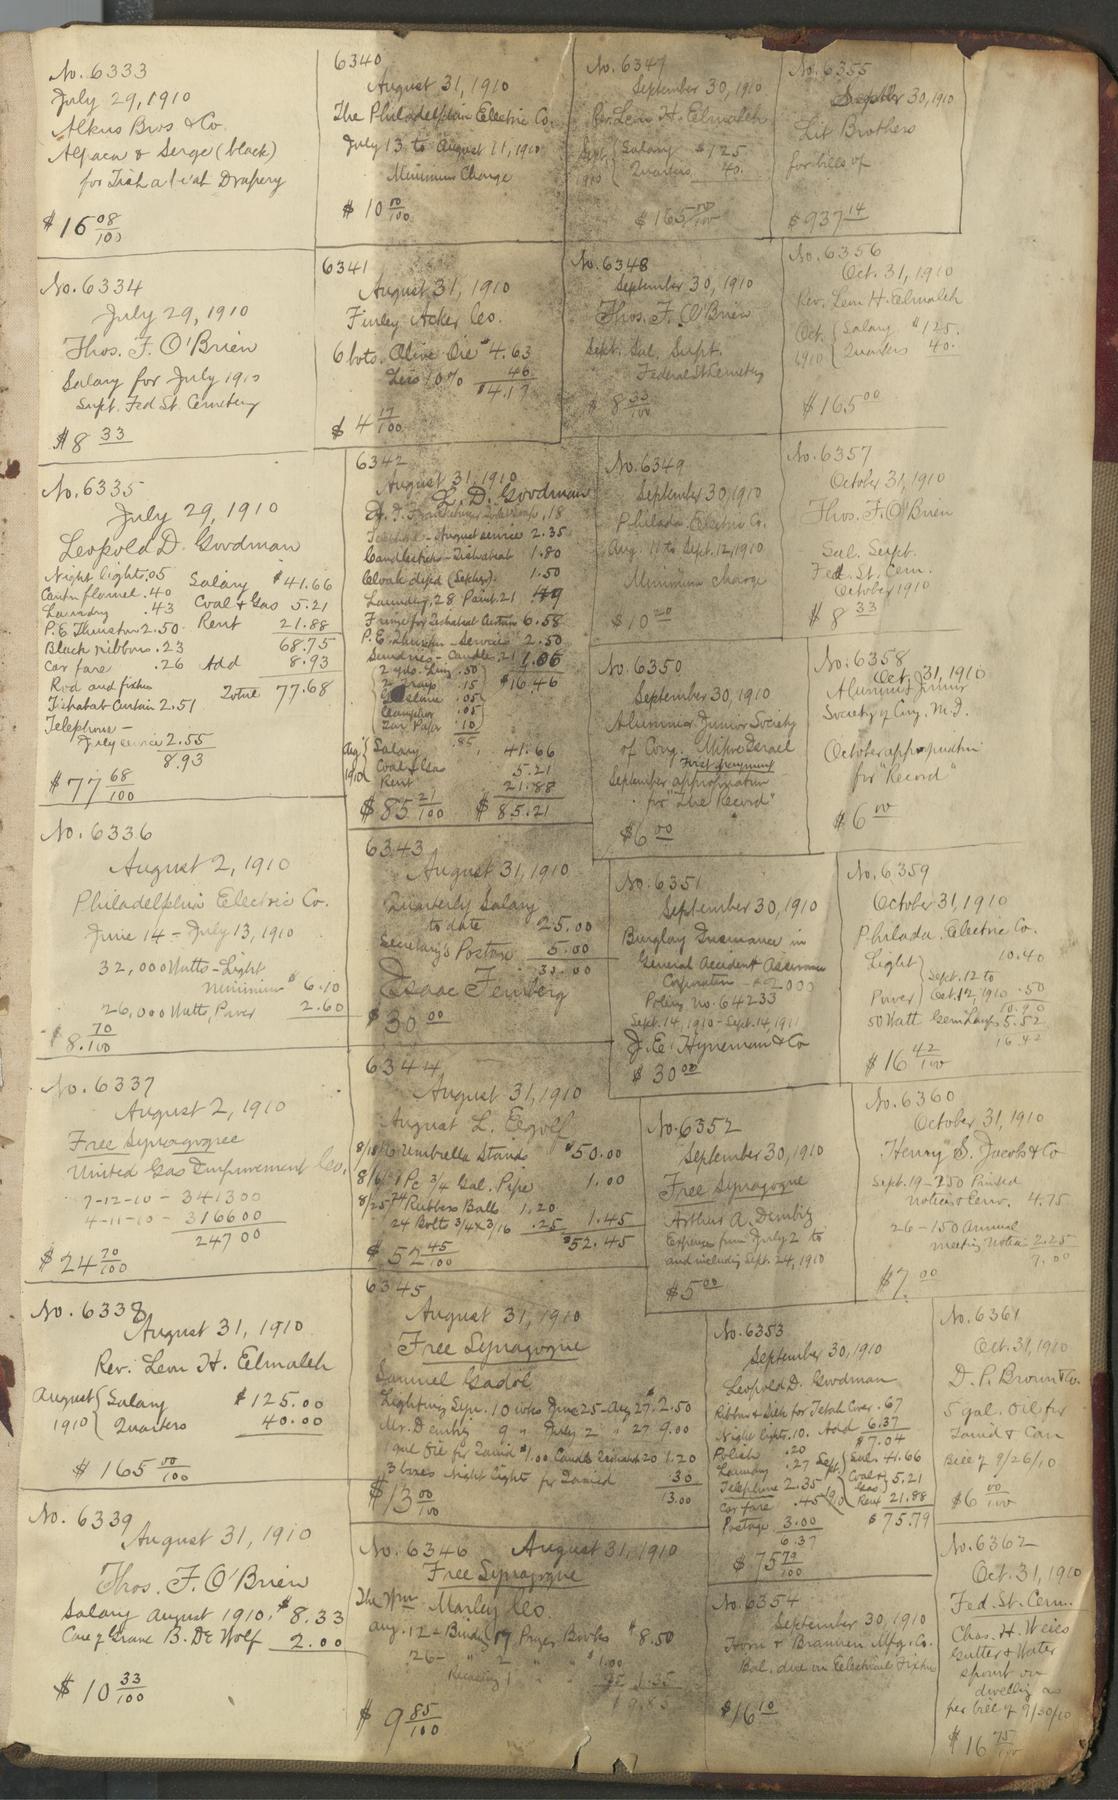 No. 6333
July 29, 1910
Alkus Bros & Co.
Alpaca & Serge (black)
for Tisha b'ab Drapery
$16 08/100
No. 6334
July 29, 1910
Thos. F. O'Brien
Salary for July 1910
Supt. Fed St. Cemetery
$8 33
No. 6335
July 29, 1910
Leopold D. Goodman
Night lights .05 Salary $41.66
Canton flannel .40 Coal & Gas 5.21
Laundry .43 Rent 21.88
P.E. Thurston 2.50 68.75
Black ribbons .23 Add 8.93
Car fare .26 Total 77.68
Rod and fixtures
Tishabab Curtain 2.51
Telephone –
July service 2.55
8.93
$77 68/100
No. 6336
August 2, 1910
Philadelphia Electric Co.
June 14 – July 13, 1910
32,000 Watts – Light
minimum $6.10
26,000 Watts, Power 2.60
$8. 70/100
No. 6337
August 2, 1910
Free Synagogue
United Gas Improvement Co.
7-12-10 – 341300
4-11-10 – 316600
24700
$24 70/100
No. 6338
August 31, 1910
Rev. Leon H. Elmaleh
August Salary $125.00
1910 Quarters 40.00
$165 00/100
No. 6339
August 31, 1910
Thos. F. O'Brien
Salary August 1910. $8.33
Care of Grave B. De Wolf 2.00
$10 33/100
6340
August 31, 1910
The Philadelphia Electric Co.
July 13 to August 11, 1910
Minimum Charge
$10 00/100
6341
August 31, 1910
Finley Acker Co.
6 bots. Olive Oil $4.63
Less 10% 46
$4.17
$4 17/100
6342
August 31, 1910
L. D. Goodman
.18
Telephone – August service 2.35
Candlesticks – Tishabab 1.80
Cloak dyed (Sepher) 1.50
Laundry, 28 Paint .21 .49
Fringe for Tishabab Curtain 6.58
P.E. Thurston – Services 2.50
Sundries – Candle .21 1.06
2 yds. Ling .50 $16.46
2 .15
.05
Chandelier .05
Tar Paper .10
.85
Aug. Salary 41.66
1910 Coal & Gas 5.21
Rent 21.88
$85 21/100 $85.21
6343
August 31, 1910
Quarterly Salary
to date 25.00
Secretary's Postage 5.00
30.00
Isaac Feinberg
$30 00
6344
August 31, 1910
August L. Eegolf
8/18/10 Umbrella Stand $50.00
8/6/ 1 Pc 3/4 Gal. Pipe 1.00
8/25/ 24 Rubber Balls 1.20
24 Bolts 3/4 x 3/16 .25 1.45
$52.45
$52 45/100
6345
August 31, 1910
Free Synagogue
Samuel Gadol
Lighting Syn. 10 wks June 25 – Aug 27 $2.50
Mr. Dembitz 9 " July 2 " 27 9.00
1 gal Oil for Tamid $1.00 Candle 20 1.20
3 boxes Night Lights for Tamid .30
13.00
$13 00/100
No. 6346 August 31, 1910
Free Synagogue
The Wm Marley Co
Aug. 12 – Binding 17 Prayer Books $8.50
26 – " 2 " " $1.00
Recasing 1 " " 35 1.35
9.85
$9 85/100
No. 6347
September 30, 1910
Rev. Leon H. Elmaleh
Sept. Salary $125.
1910 Quarters 40.
$165 00/100
No. 6348
September 30, 1910
Thos. F. O'Brien
Sept. Sal. Supt.
Federal St Cemetery
$8 33/100
No. 6349
September 30, 1910
Philada. Electric Co.
Aug. 11 to Sept. 12, 1910
Minimum charge
$10 20
No. 6350
September 30, 1910
Alumni Junior Society
of Cong. Mikve Israel
First payment
September appropriation
for "The Record"
$6 00
No. 6351
September 30, 1910
Burglary Insurance in
General Accident Assurance
Corporation – $2000
Policy no. 64233
Sept. 14, 1910 – Sept. 14, 1911
J. E. Hyneman & Co
$30 00
No. 6352
September 30, 1910
Free Synagogue
Arthur A. Dembitz
Expenses from July 2 to
and including Sept. 24, 1910
$5 00
No. 6353
September 30, 1910
Leopold D. Goodman
Ribbon & Silk for Tebah Cover .67
Night lights .10. Add 6.37
Polish .20 $7.04
Laundry .27 Sept. Sal. 41.66
Telephone 2.35 1910 Coal & Gas 5.21
Car fare .45 Rent 21.88
Postage 3.00 $75.79
6.37
$75 79/100
No. 6354
September 30, 1910
Horn & Brannen Mfg. Co.
Bal. due on Electrical Fixtures
$16 10
No. 6355
Septbr 30, 1910
Lit Brothers
for bills of
$937 14
No. 6356
Oct. 31, 1910
Rev. Leon H. Elmaleh
Oct. Salary $125.
1910 Quarters 40.
$165 00
No. 6357
October 31, 1910
Thos. F. O'Brien
Sal. Supt.
Fed. St. Cem.
October 1910
$8 33
No. 6358
Oct. 31, 1910
Alumni Junior
Society of Cong. M.I.
October appropriation
for "Record"
$6 00
No. 6359
October 31, 1910
Philada. Electric Co.
Light 10.40
Sept. 12 to
Power Oct. 12, 1910 .50
10.90
50 Watt Gem Lamps 5.52
16.42
$16 42/100
No. 6360
October 31, 1910
Henry S. Jacobs & Co
Sept. 19 – 250 Printed
Notices & Env. 4.75
26 – 150 Annual
meeting Notices 2.25
7.00
$7. 00
No. 6361
Oct. 31, 1910
D. P. Brown & Co.
5 gal. Oil for
Tamid & Can
Bill of 9/26/10
$6 00/100
No. 6362
Oct. 31, 1910
Fed. St. Cem.
Chas. H. Weiss
Gutter & Water
spout on
dwelling as
per bill of 9/30/10
$16 75/100